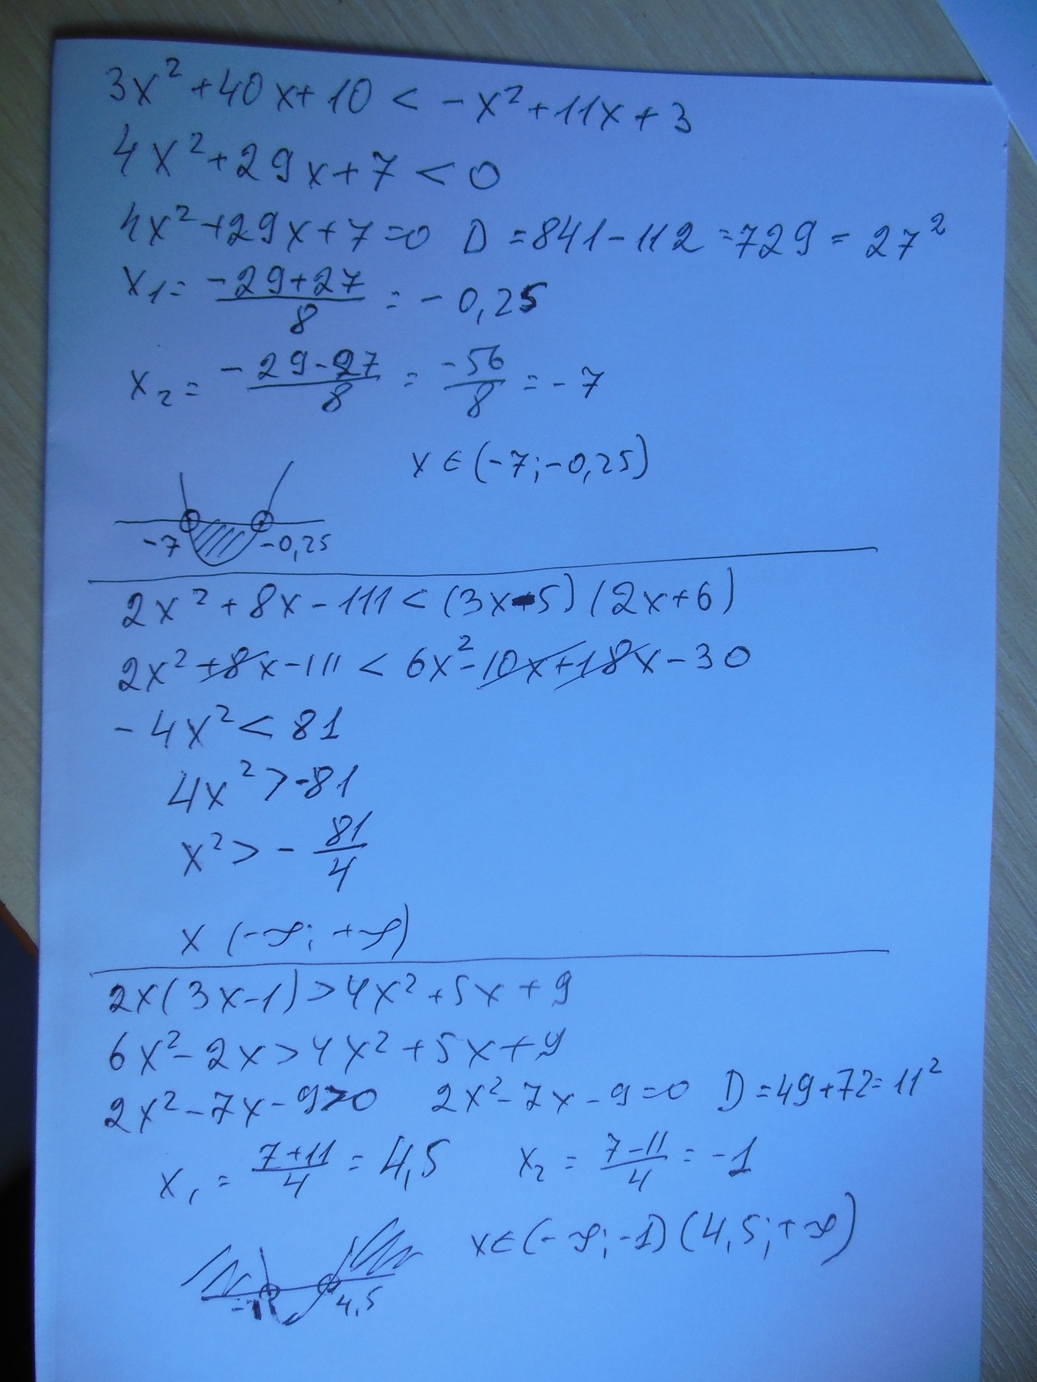 3x² + 40x + 10 < -x² + 11x + 3
4x² + 29x + 7 < 0
4x² + 29x + 7 = 0 D = 841 - 112 = 729 = 27²
x₁ = (-29+27)/8 = -0,25
x₂ = (-29-27)/8 = -56/8 = -7
x ∈ (-7; -0,25)
-7 -0,25
2x² + 8x - 111 < (3x-5)(2x+6)
2x² + 8x - 111 < 6x² - 10x + 18x - 30
-4x² < 81
4x² > -81
x² > -81/4
x (-∞; +∞)
2x(3x-1) > 4x² + 5x + 9
6x² - 2x > 4x² + 5x + 9
2x² - 7x - 9 > 0 2x² - 7x - 9 = 0 D = 49 + 72 = 11²
x₁ = (7+11)/4 = 4,5 x₂ = (7-11)/4 = -1
x ∈ (-∞; -1) (4,5; +∞)
-1 4,5